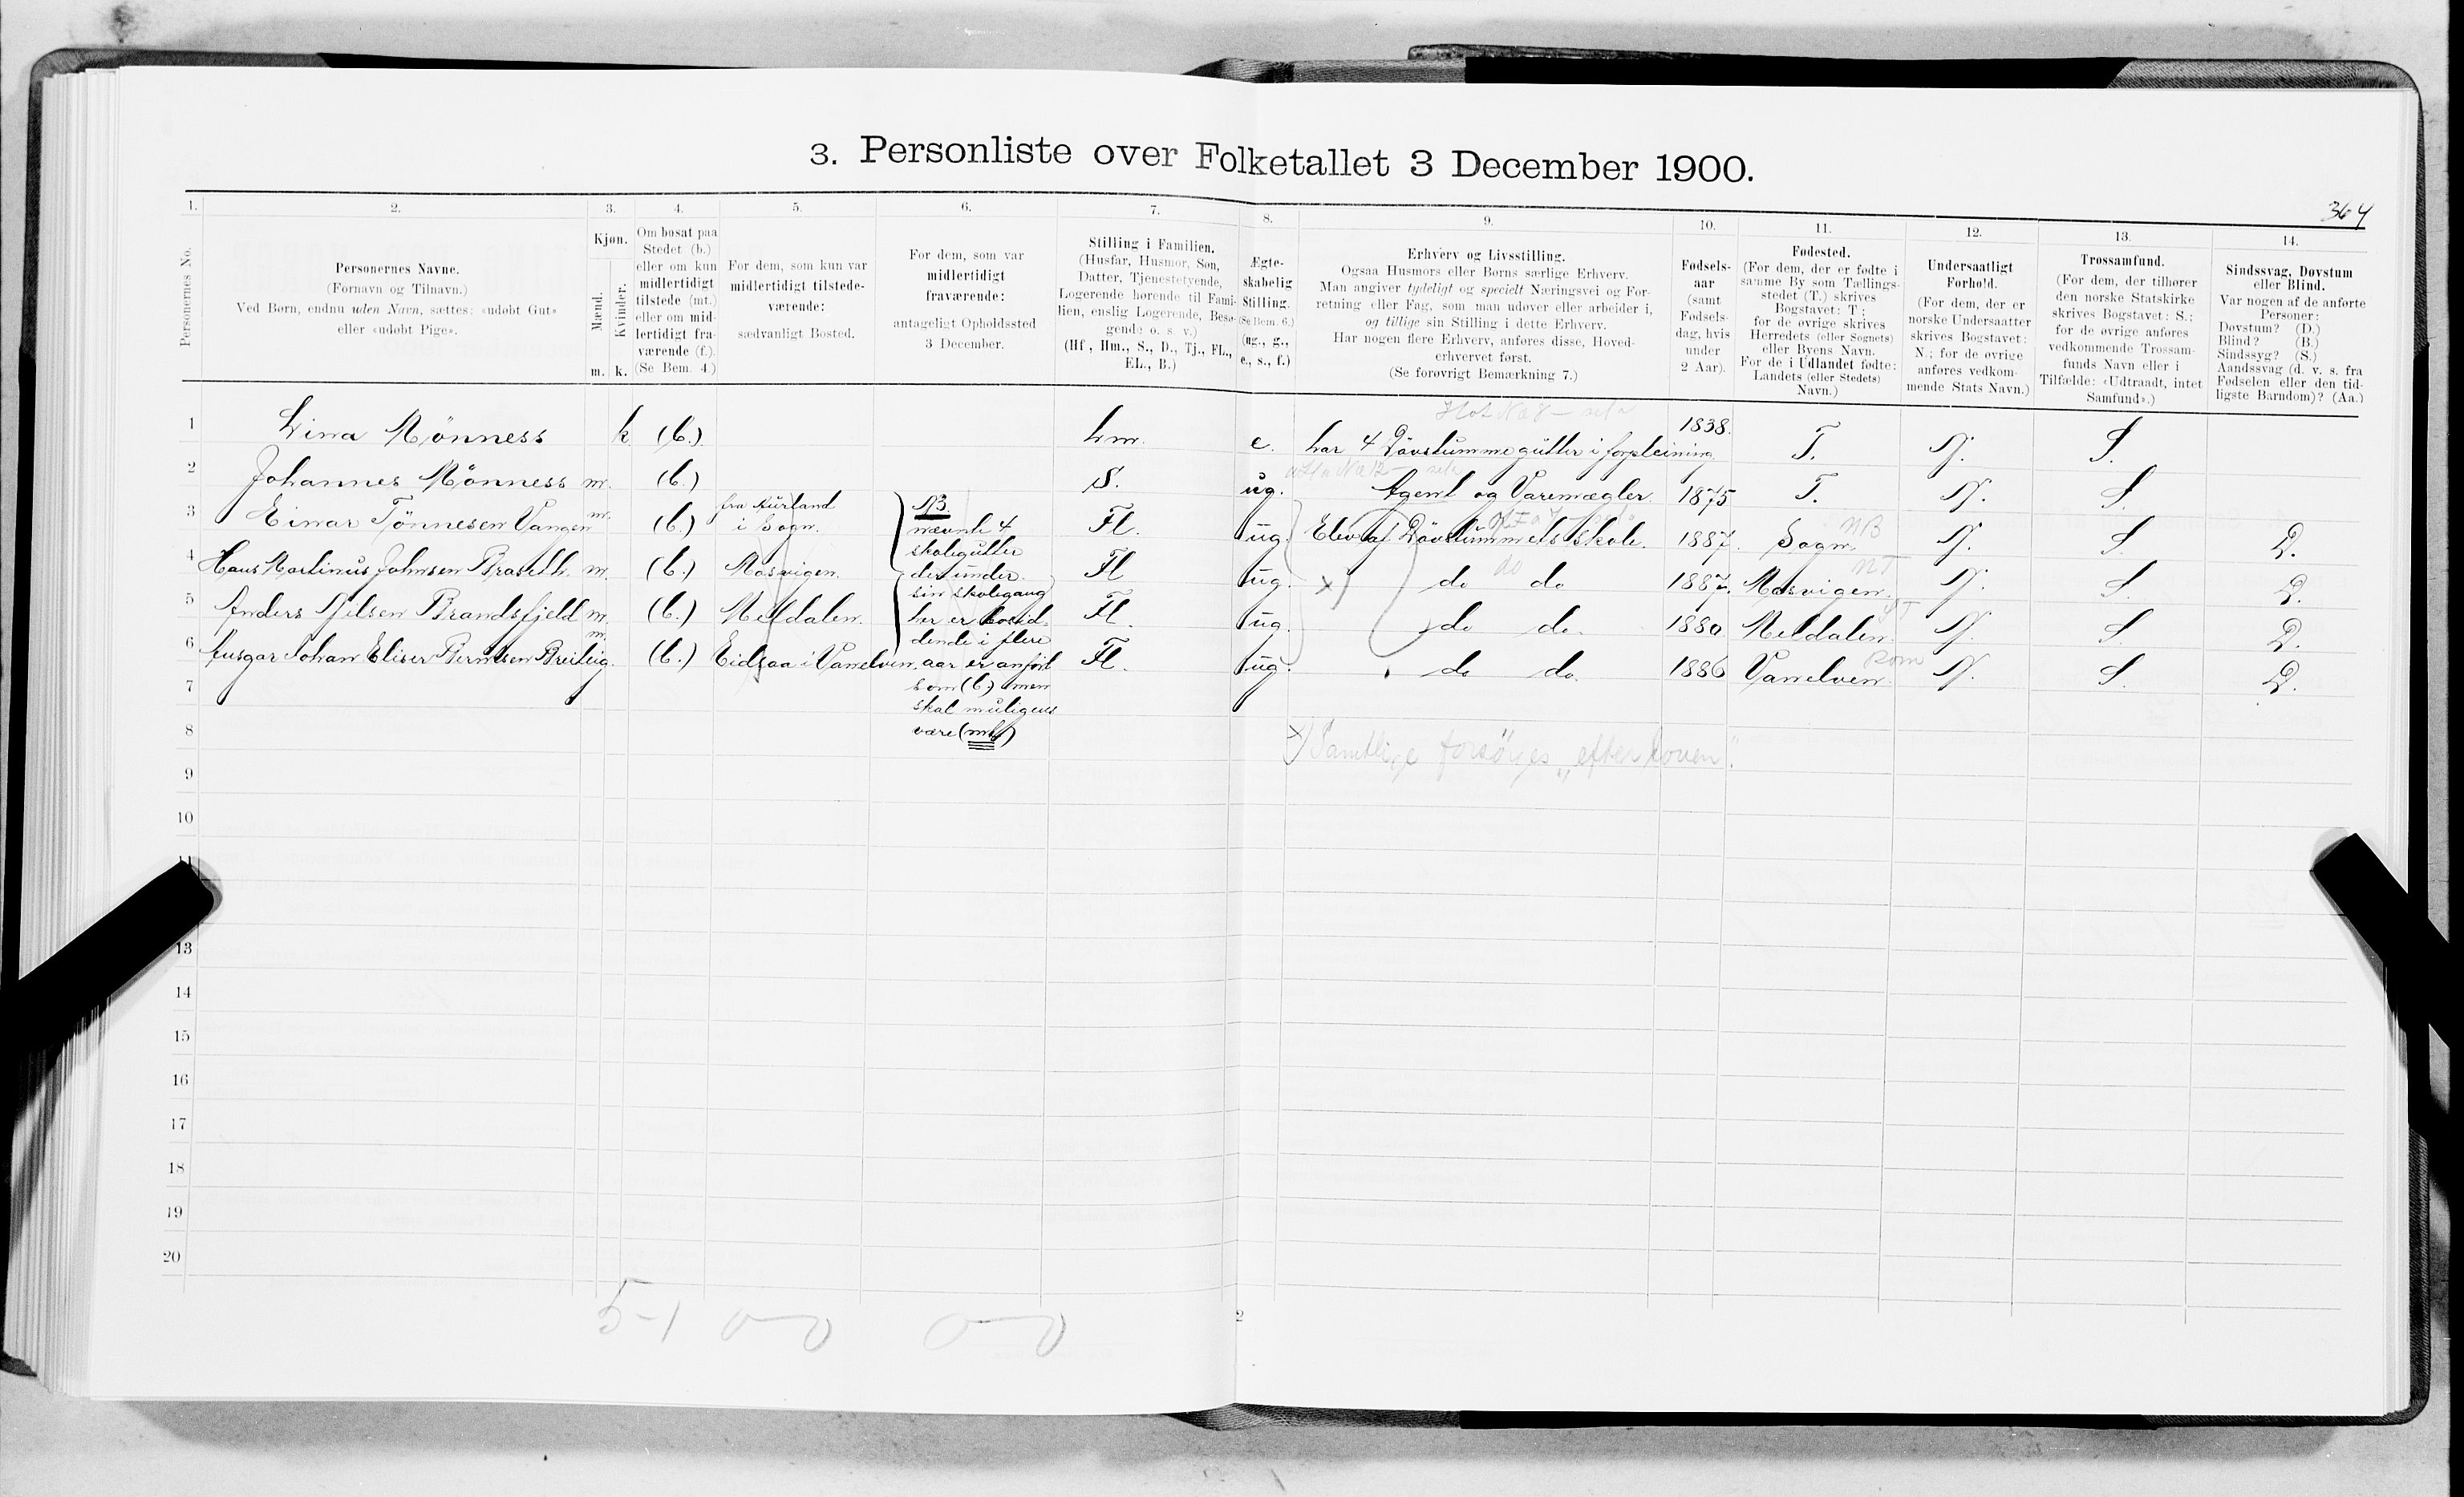 3. Personliste over Folketallet 3 December 1900.
364
1. 2. 3. 4. 5. 6. 7. 8. 9. 10. 11. 12. 13. 14.
Personernes No.
Personernes Navne.
(Fornavn og Tilnavn.)
Ved Børn, endnu uden Navn, sættes: «udøbt Gut»
eller «udøbt Pige».
Kjøn.
Mænd.
Kvinder.
m. k.
Om bosat paa
Stedet (b.)
eller om kun
midlertidigt
tilstede (mt.)
eller om mid-
lertidigt fra-
værende (f.).
(Se Bem. 4.)
For dem, som kun var
midlertidigt tilstede-
værende:
sædvanligt Bosted.
For dem, som var
midlertidigt
fraværende:
antageligt Opholdssted
3 December.
Stilling i Familien.
(Husfar, Husmor, Søn,
Datter, Tjenestetyende,
Logerende hørende til Fami-
lien, enslig Logerende, Besø-
gende o. s. v.)
(Hf., Hm., S., D., Tj., FL.,
EL., B.)
Ægte-
skabelig
Stilling.
(Se Bem. 6.)
(ug., g.,
e., s., f.)
Erhverv og Livsstilling.
Ogsaa Husmors eller Børns særlige Erhverv.
Man angiver tydeligt og specielt Næringsvei og For-
retning eller Fag, som man udøver eller arbeider i,
og tillige sin Stilling i dette Erhverv.
Har nogen flere Erhverv, anføres disse, Hoved-
erhvervet først.
(Se forøvrigt Bemærkning 7.)
Fødsels-
aar
(samt
Fødsels-
dag, hvis
under
2 Aar).
Fødested.
(For dem, der er fødte i
samme By som Tællings-
stedet (T.) skrives
Bogstavet: T;
for de øvrige skrives
Herredets (eller Sognets)
eller Byens Navn.
For de i Udlandet fødte:
Landets (eller Stedets)
Navn.)
Undersaatligt
Forhold.
(For dem, der er
norske Undersaatter
skrives Bogstavet:
N.; for de øvrige
anføres vedkom-
mende Stats Navn.)
Trossamfund.
(For dem, der tilhører
den norske Statskirke
skrives Bogstavet: S.;
for de øvrige anføres
vedkommende Trossam-
funds Navn eller i
Tilfælde: «Udtraadt, intet
Samfund».)
Sindssvag, Døvstum
eller Blind.
Var nogen af de anførte
Personer:
Døvstum? (D.)
Blind? (B.)
Sindssyg? (S.)
Aandssvag (d. v. s. fra
Fødselen eller den tid-
ligste Barndom)? (Aa.)
1 Lina Mönness k (b.) hm. e. har 4 Dövstumme gutter i forpleining 1838. T. N. S.
2 Johannes Mönness m. (b.) S. ug. Agent og Varemægler 1875 T. N. S.
3 Einar Tönnesen Vangen m. (b.) fra Aurland i Sogn. Fl. ug. Elev af Dövstummets skole. 1887. Sogn. NB N. S. D.
4 Hans Martinus Johnsen Braseth. m. (b.) Mosvigen. Fl ug. x) do do 1887. Mosvigen. NT N. S. D.
5 Anders Nilsen Brandsfjeld m. (b.) Meldalen. Fl. ug. do do. 1880 Meldalen. N. S. D.
6 Ansgar Johan Eliser Berntsen Breiteig. m. (b.) Eidsaa i Vanelven. Fl. ug. do do. 1886 Vanelven. Rom N. S. D.
NB.
nævnte 4
skolegutter
der under
sin skolegang
her er bosid-
dende i flere
aar er anfört
som (b.) men
skal muligens
være (mt.)
x) Samtlige forsörges "efter loven".
7
8
9
10
11
13
14
15
16
17
18
19
20
5-1
0-0
0-0
2